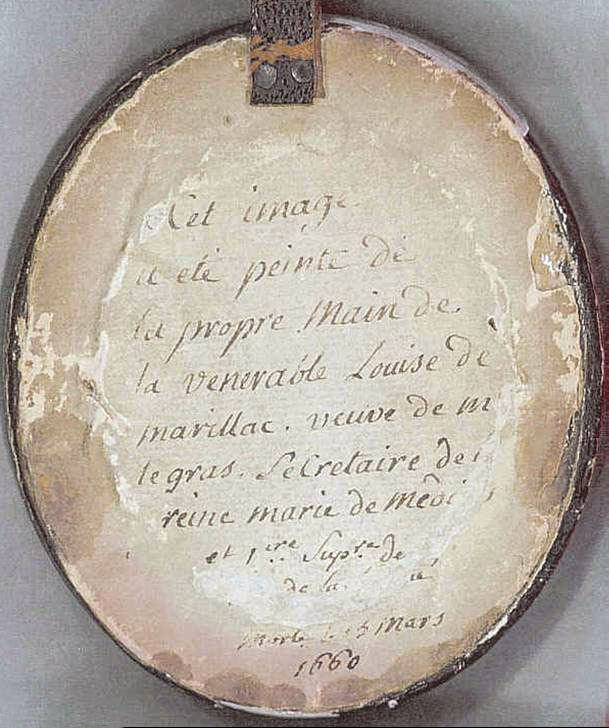 Cet image
a eté peinte de
la propre Main de
la venerable Louise de
marillac. veuve de m
le gras. Secretaire de
reine marie de medi
et 1.re Sup.re de
de la
Morte le 15 Mars
1660